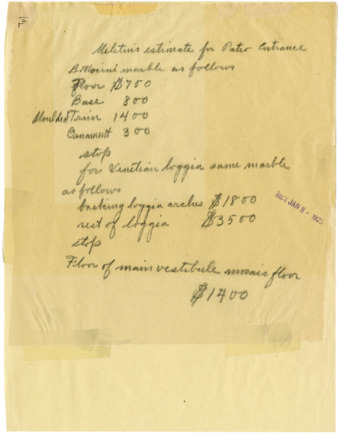 Melitin's estimate for Patio Entrance
Botticini marble as follows
Floor $750
Base 800
Moulded Trim 1400
Ornament 300
stop
for Venetian loggia same marble
as follows
backing loggia arches $1800
rest of loggia $3500
stop
Floor of main vestibule mosaic floor
$1400
JAN 8 - 1925